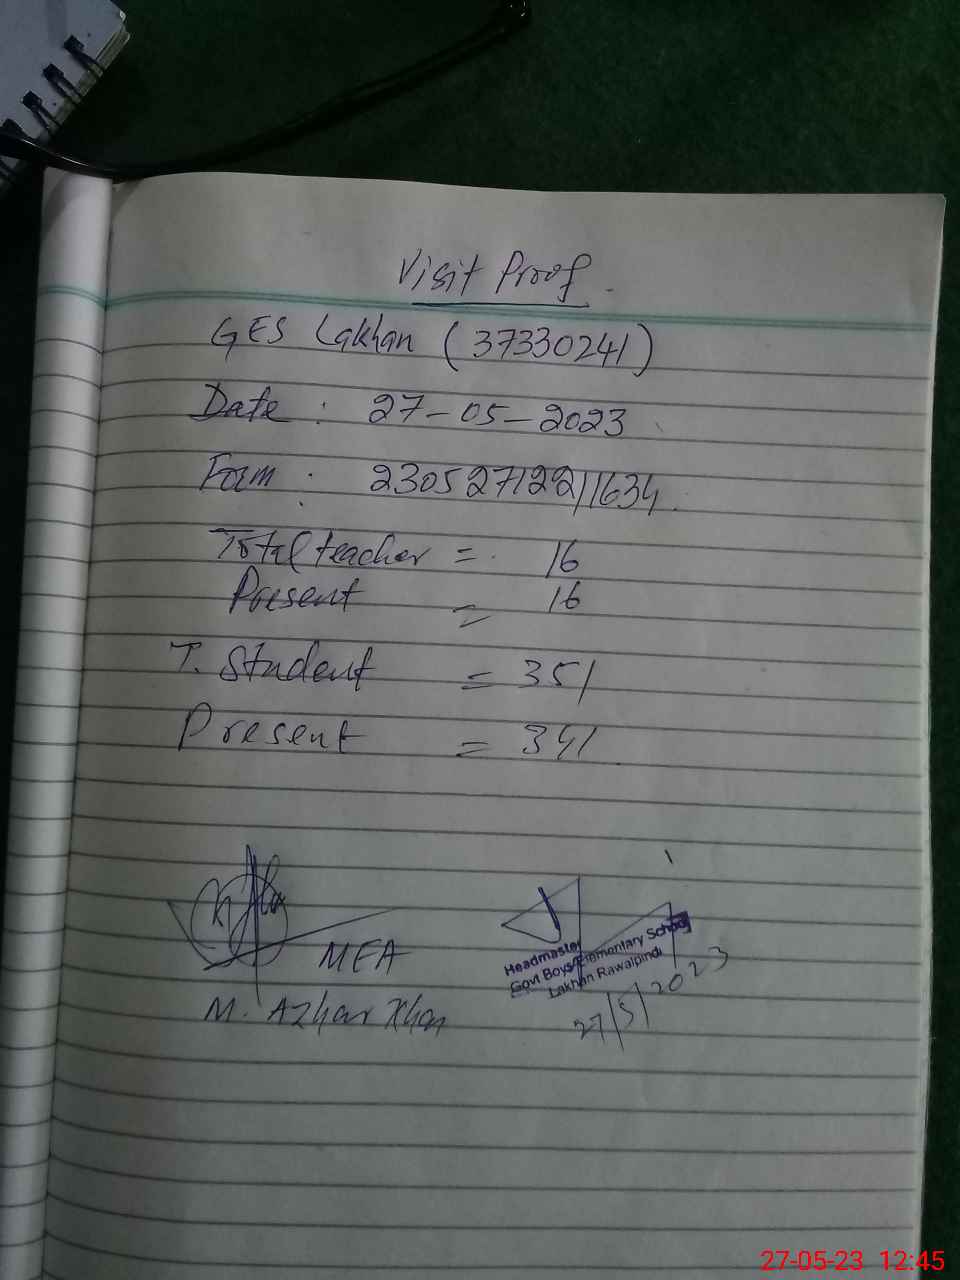 Visit Proof
GES Lakhan (37330241)
Date : 27-05-2023
Form : 230527122211634
Total teacher = 16
Present = 16
T. Student = 351
Present = 341
MEA
M. Azhar Khan
Headmaster
Govt Boys Elementary School
Lakhan Rawalpindi
27/5/2023
27-05-23 12:45